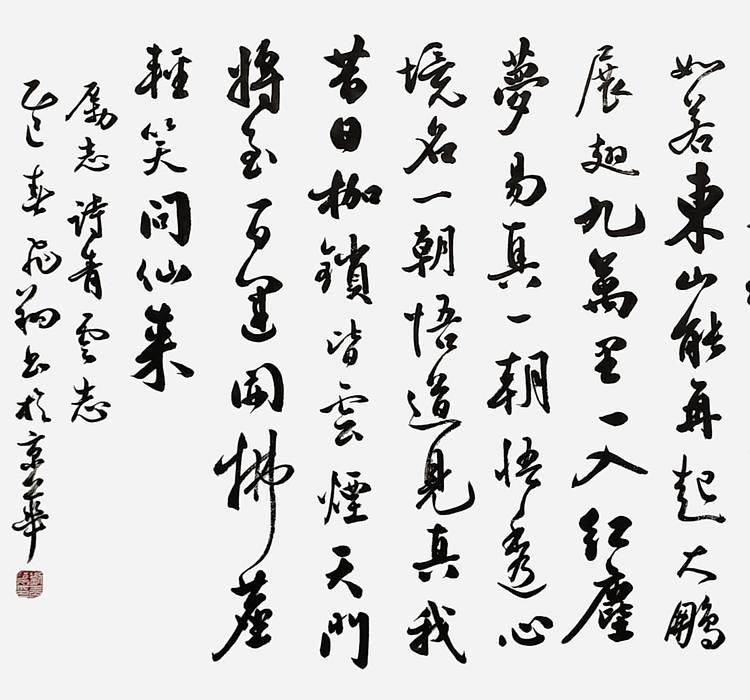 如若東山能再起大鵬
展翅九萬里一入紅塵
夢易真一朝悟透心
境名一朝悟道見真我
昔日枷鎖皆雲煙天門
將至百運開拂塵
輕笑問仙來
勵志詩青雲志
乙巳春飛翔書於京華